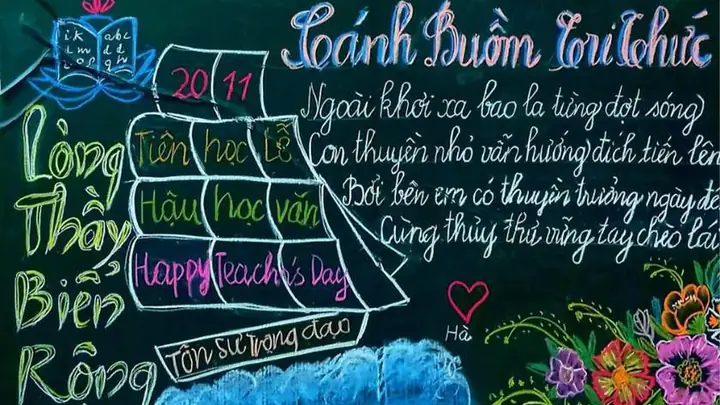 Cánh Buồm Tri Thức
Ngoài khơi xa bao la từng đợt sóng
Con thuyền nhỏ vẫn hướng đích tiến lên
Bởi bên em có thuyền trưởng ngày
Cùng thủy thủ vững tay chèo lái
Lòng
Thầy
Biển
Rộng
20 11
Tiên học Lễ
Hậu học văn
Happy Teacher's Day
Tôn sư trọng đạo
Hà
i k
l m
a b c